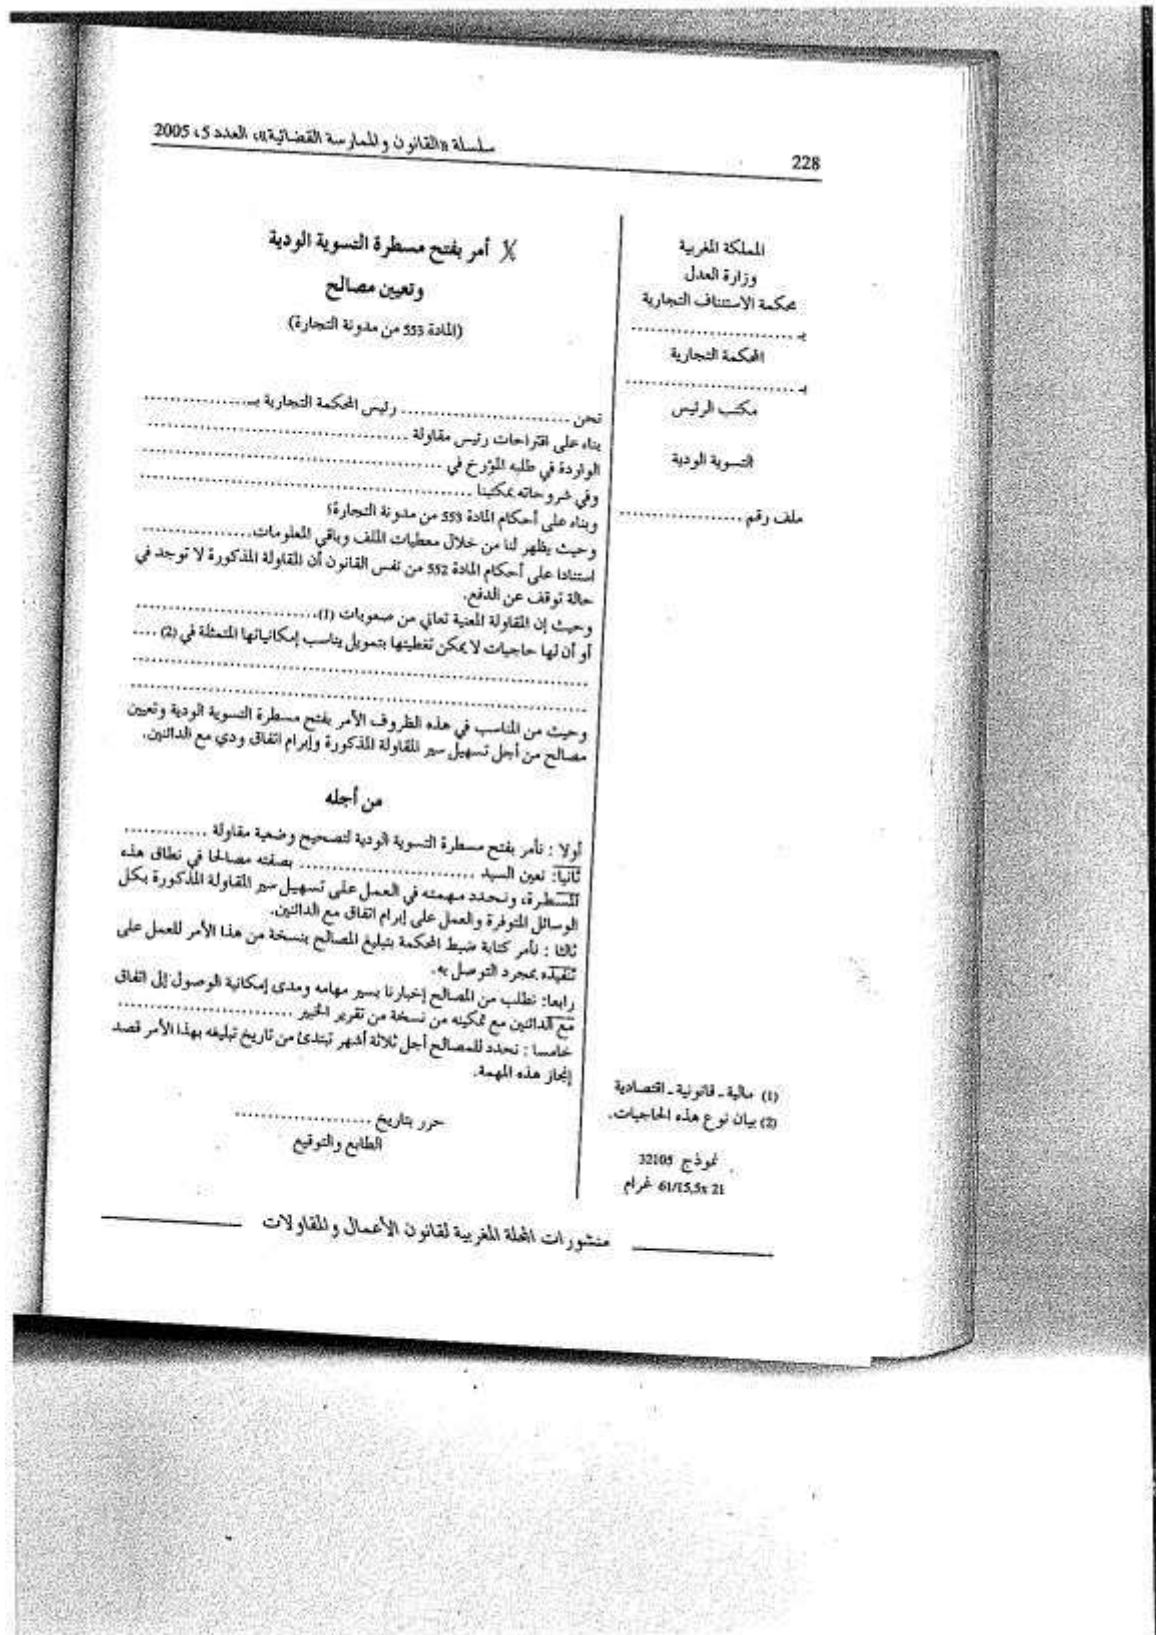 228
سلسلة «القانون والممارسة القضائية»، العدد 5، 2005
المملكة المغربية
وزارة العدل
محكمة الاستئناف التجارية
بـ ........................
المحكمة التجارية
بـ ........................
مكتب الرئيس
التسوية الودية
ملف رقم ..................
(1) مالية ـ قانونية ـ اقتصادية
(2) بيان نوع هذه الحاجيات.
نموذج 32105
21 x 61/15,5 غرام
أمر بفتح مسطرة التسوية الودية
وتعيين مصالح
(المادة 553 من مدونة التجارة)
نحن ......................... رئيس المحكمة التجارية بـ ...............
بناء على اقتراحات رئيس مقاولة ...................................
الواردة في طلبه المؤرخ في ........................................
وفي شروحاته بمكتبنا .............................................
وبناء على أحكام المادة 553 من مدونة التجارة؛
وحيث يظهر لنا من خلال معطيات الملف وباقي المعلومات................
استنادا على أحكام المادة 552 من نفس القانون أن المقاولة المذكورة لا توجد في
حالة توقف عن الدفع.
وحيث إن المقاولة المعنية تعاني من صعوبات (1)...........................
أو أن لها حاجيات لا يمكن تغطيتها بتمويل يناسب إمكانياتها المتمثلة في (2) ....
..............................................................
..............................................................
وحيث من المناسب في هذه الظروف الأمر بفتح مسطرة التسوية الودية وتعيين
مصالح من أجل تسهيل سير المقاولة المذكورة وإبرام اتفاق ودي مع الدائنين.
من أجله
أولا : نأمر بفتح مسطرة التسوية الودية لتصحيح وضعية مقاولة .............
ثانيا: نعين السيد .......................... بصفته مصالحا في نطاق هذه
المسطرة، ونحدد مهمته في العمل على تسهيل سير المقاولة المذكورة بكل
الوسائل المتوفرة والعمل على إبرام اتفاق مع الدائنين.
ثالثا : نأمر كتابة ضبط المحكمة بتبليغ المصالح بنسخة من هذا الأمر للعمل على
تنفيذه بمجرد التوصل به.
رابعا: نطلب من المصالح إخبارنا بسير مهامه ومدى إمكانية الوصول إلى اتفاق
مع الدائنين مع تمكينه من نسخة من تقرير الخبير ..........................
خامسا : نحدد للمصالح أجل ثلاثة أشهر تبتدئ من تاريخ تبليغه بهذا الأمر قصد
إنجاز هذه المهمة.
حرر بتاريخ ....................
الطابع والتوقيع
منشورات المجلة المغربية لقانون الأعمال والمقاولات